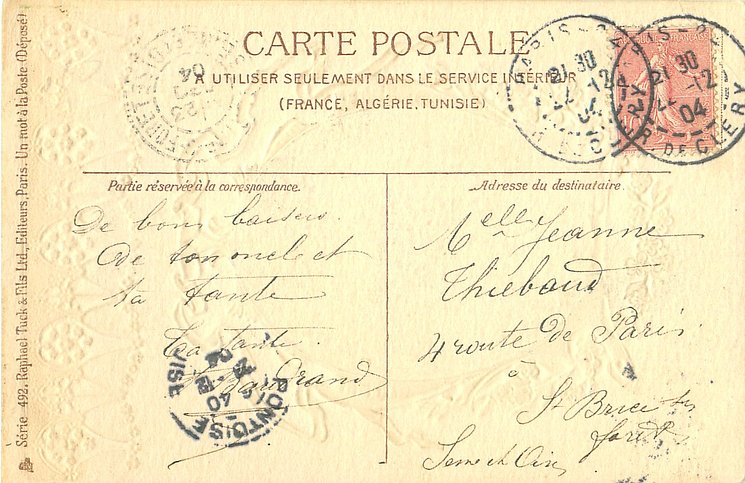 CARTE POSTALE
A UTILISER SEULEMENT DANS LE SERVICE INTÉRIEUR
(FRANCE, ALGÉRIE, TUNISIE)
Série 492. Raphael Tuck & Fils Ltd., Editeurs, Paris. Un mot à la Poste (Déposé)
Partie réservée à la correspondance.
De bons baisers
de ton oncle et
ta tante
Ta tante
Adresse du destinataire.
Melle Jeanne
Thiebaud
4 route de Paris
à
St Brice sous
forêt
Seine et Oise
PARIS
21 30
-12
04
R. DE CLERY
PARIS
21 30
-12
04
PONTOISE